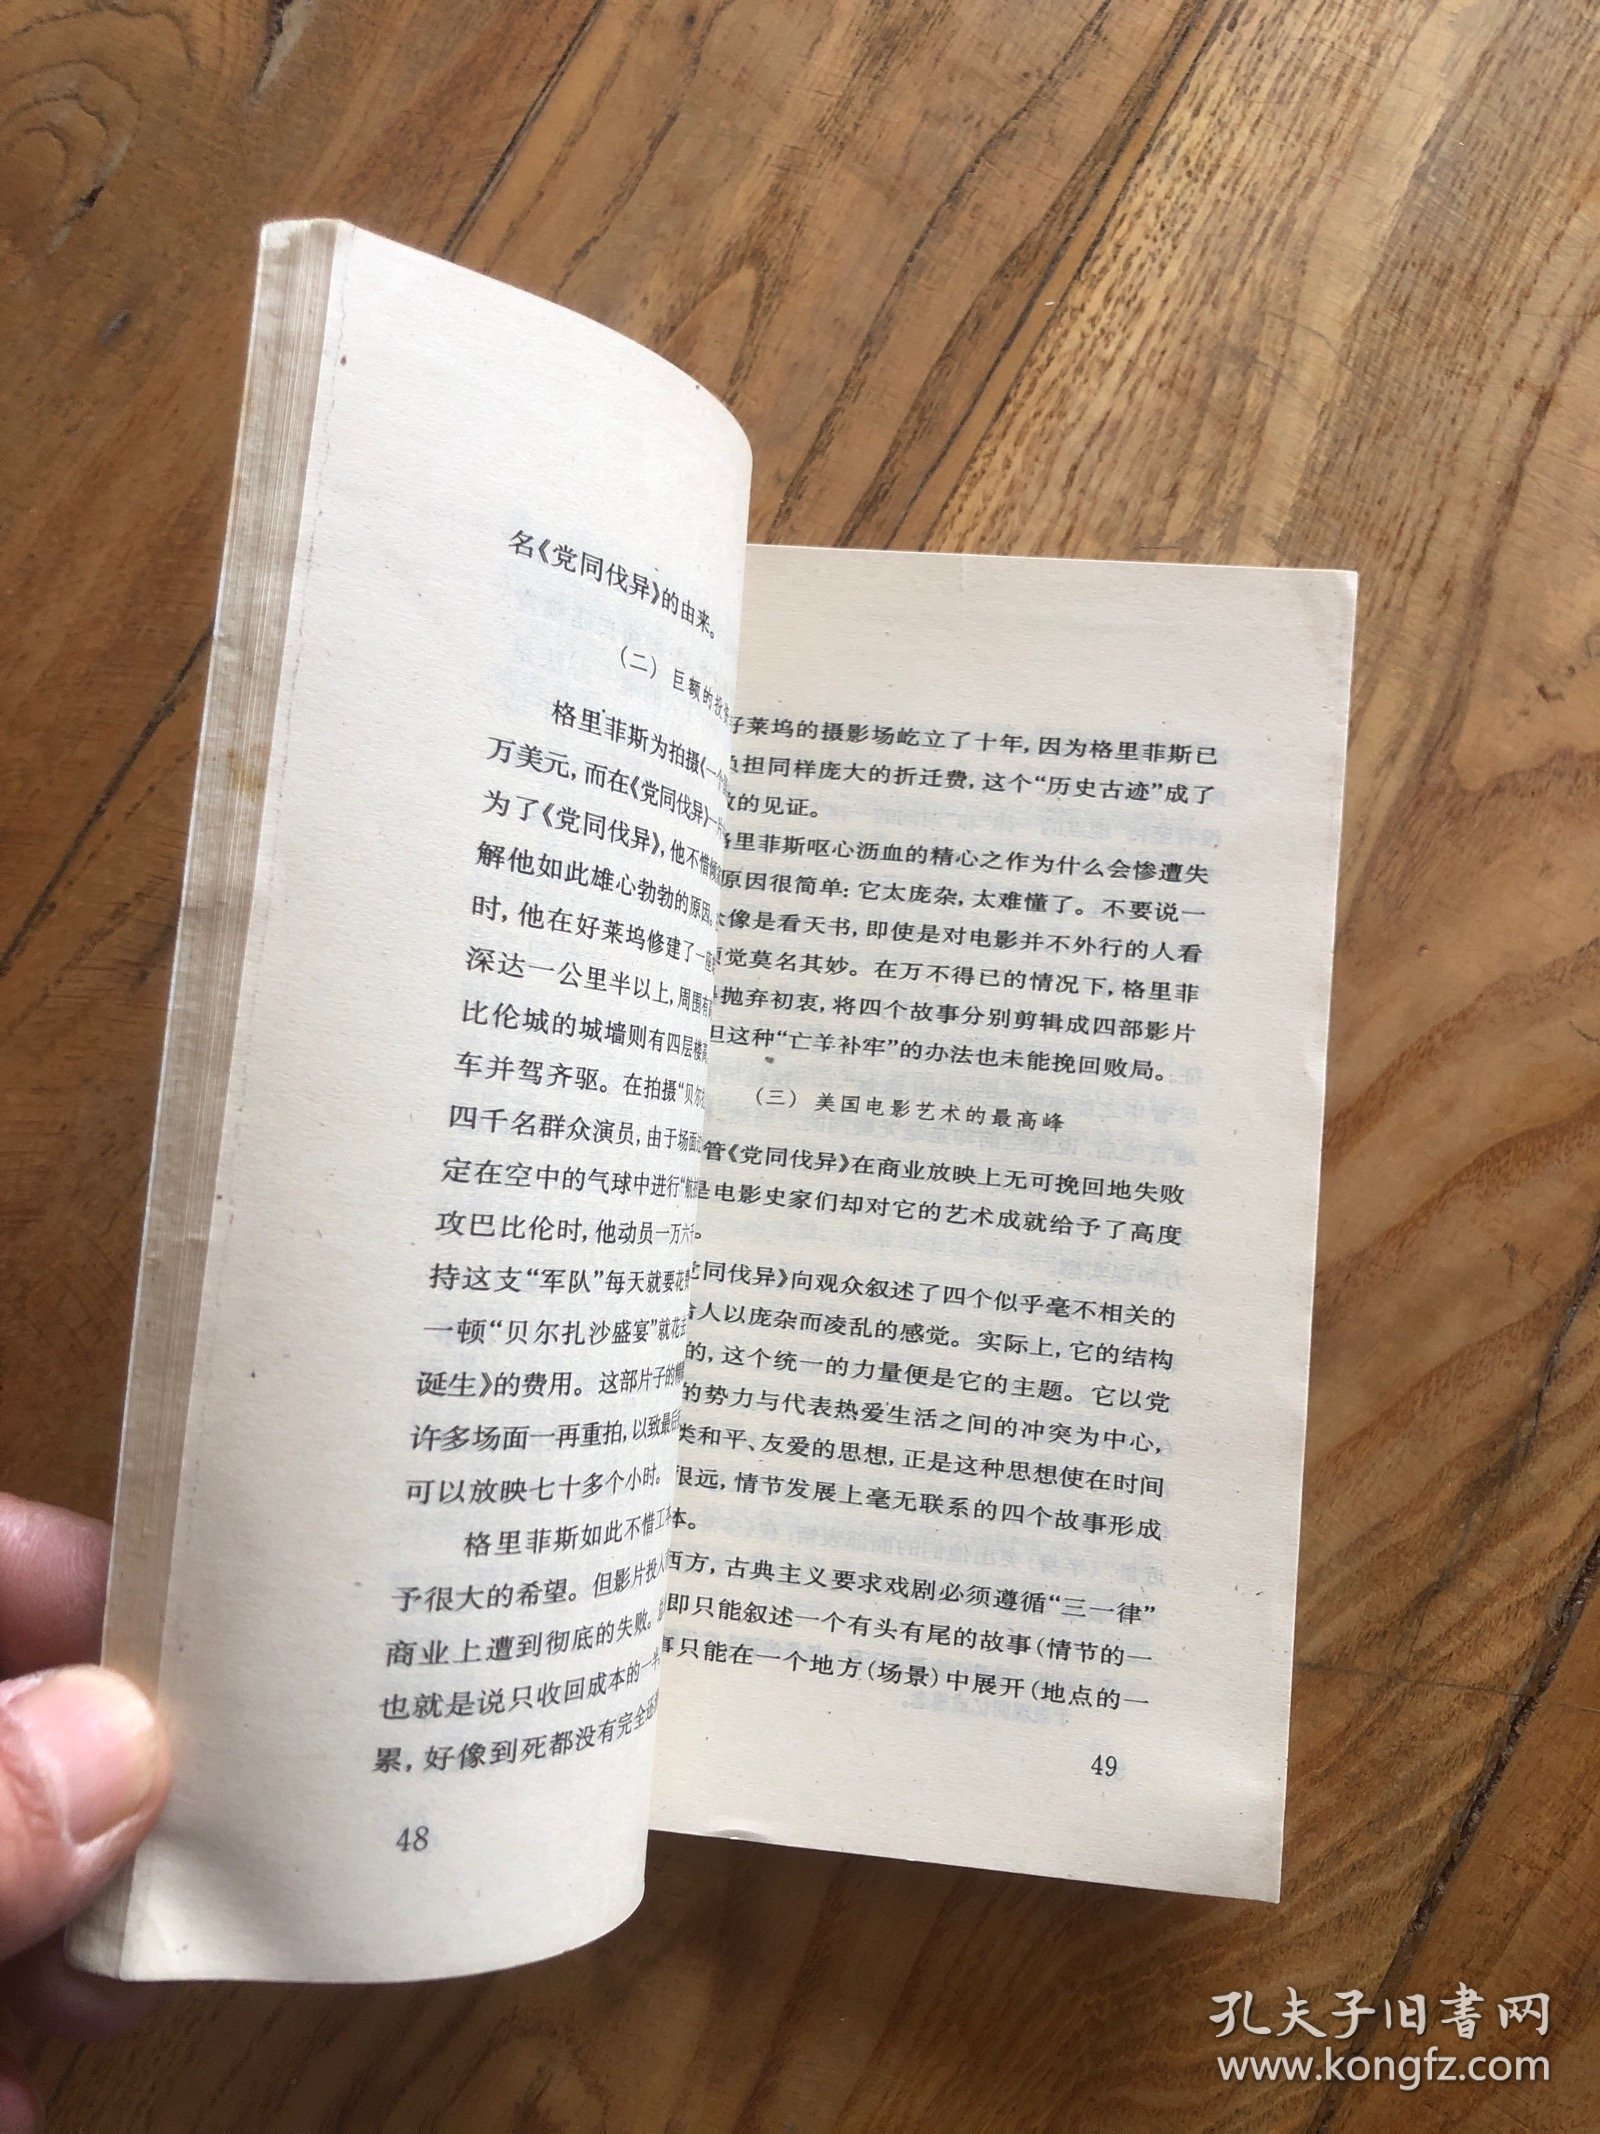 名《党同伐异》的由来。
(二) 巨额的投资
格里菲斯为拍摄《一个
万美元，而在《党同伐异》一片
为了《党同伐异》，他不惜倾
解他如此雄心勃勃的原因。
时，他在好莱坞修建了一座
深达一公里半以上，周围有
比伦城的城墙则有四层楼高
车并驾齐驱。在拍摄“贝尔
四千名群众演员，由于场面
定在空中的气球中进行“航
攻巴比伦时，他动员一万六千
持这支“军队”每天就要花费
一顿“贝尔扎沙盛宴”就花去
诞生》的费用。这部片子的
许多场面一再重拍，以致最后
可以放映七十多个小时。
格里菲斯如此不惜工本
予很大的希望。但影片投入
商业上遭到彻底的失败。
也就是说只收回成本的一半
累，好像到死都没有完全还
48
好莱坞的摄影场屹立了十年，因为格里菲斯已
负担同样庞大的折迁费，这个“历史古迹”成了
败的见证。
格里菲斯呕心沥血的精心之作为什么会惨遭失
原因很简单：它太庞杂，太难懂了。不要说一
像是看天书，即使是对电影并不外行的人看
觉莫名其妙。在万不得已的情况下，格里菲
抛弃初衷，将四个故事分别剪辑成四部影片
但这种“亡羊补牢”的办法也未能挽回败局。
(三) 美国电影艺术的最高峰
管《党同伐异》在商业放映上无可挽回地失败
是电影史家们却对它的艺术成就给予了高度
。
党同伐异》向观众叙述了四个似乎毫不相关的
人以庞杂而凌乱的感觉。实际上，它的结构
的，这个统一的力量便是它的主题。它以党
的势力与代表热爱生活之间的冲突为中心，
类和平、友爱的思想，正是这种思想使在时间
很远，情节发展上毫无联系的四个故事形成
本。
西方，古典主义要求戏剧必须遵循“三一律”
即只能叙述一个有头有尾的故事(情节的一
事只能在一个地方(场景)中展开(地点的一
49
孔夫子旧书网
www.kongfz.com